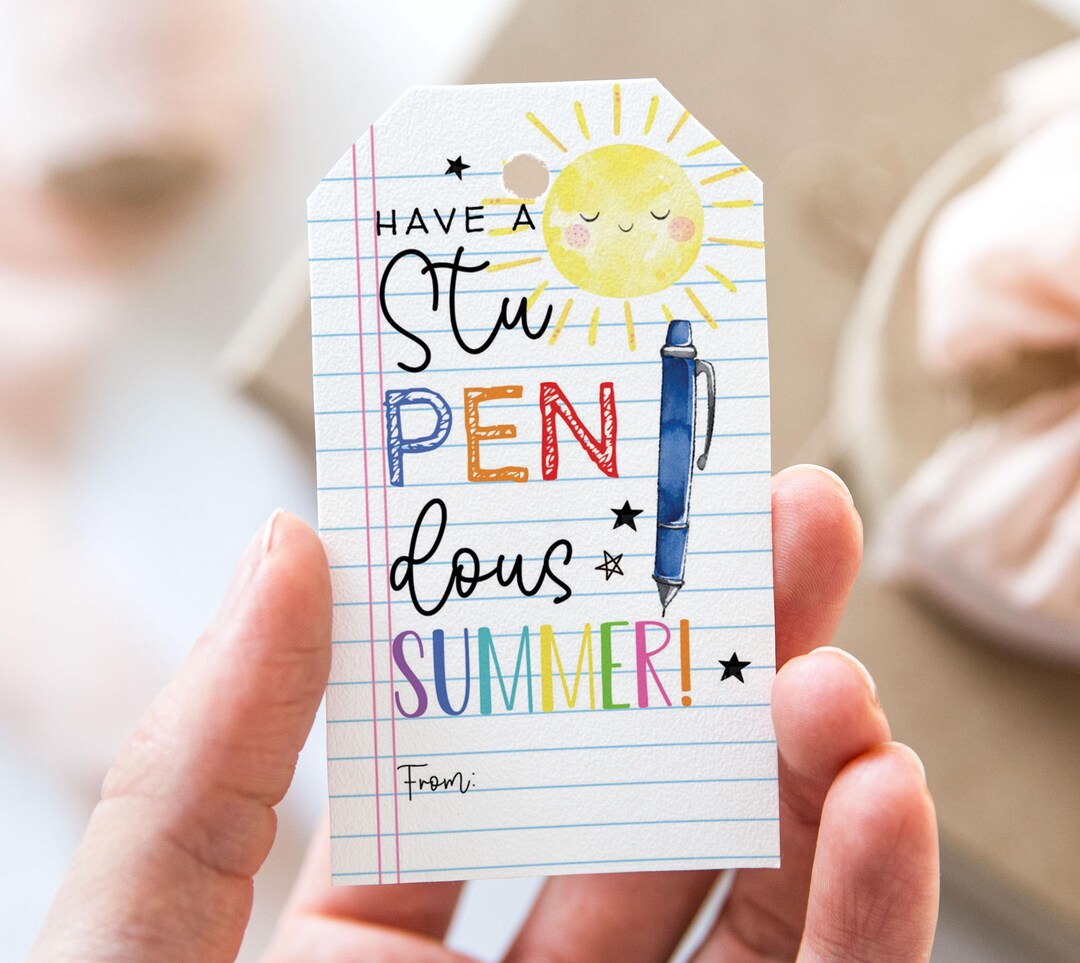 HAVE A
Stu
PEN
dous
SUMMER!
From: